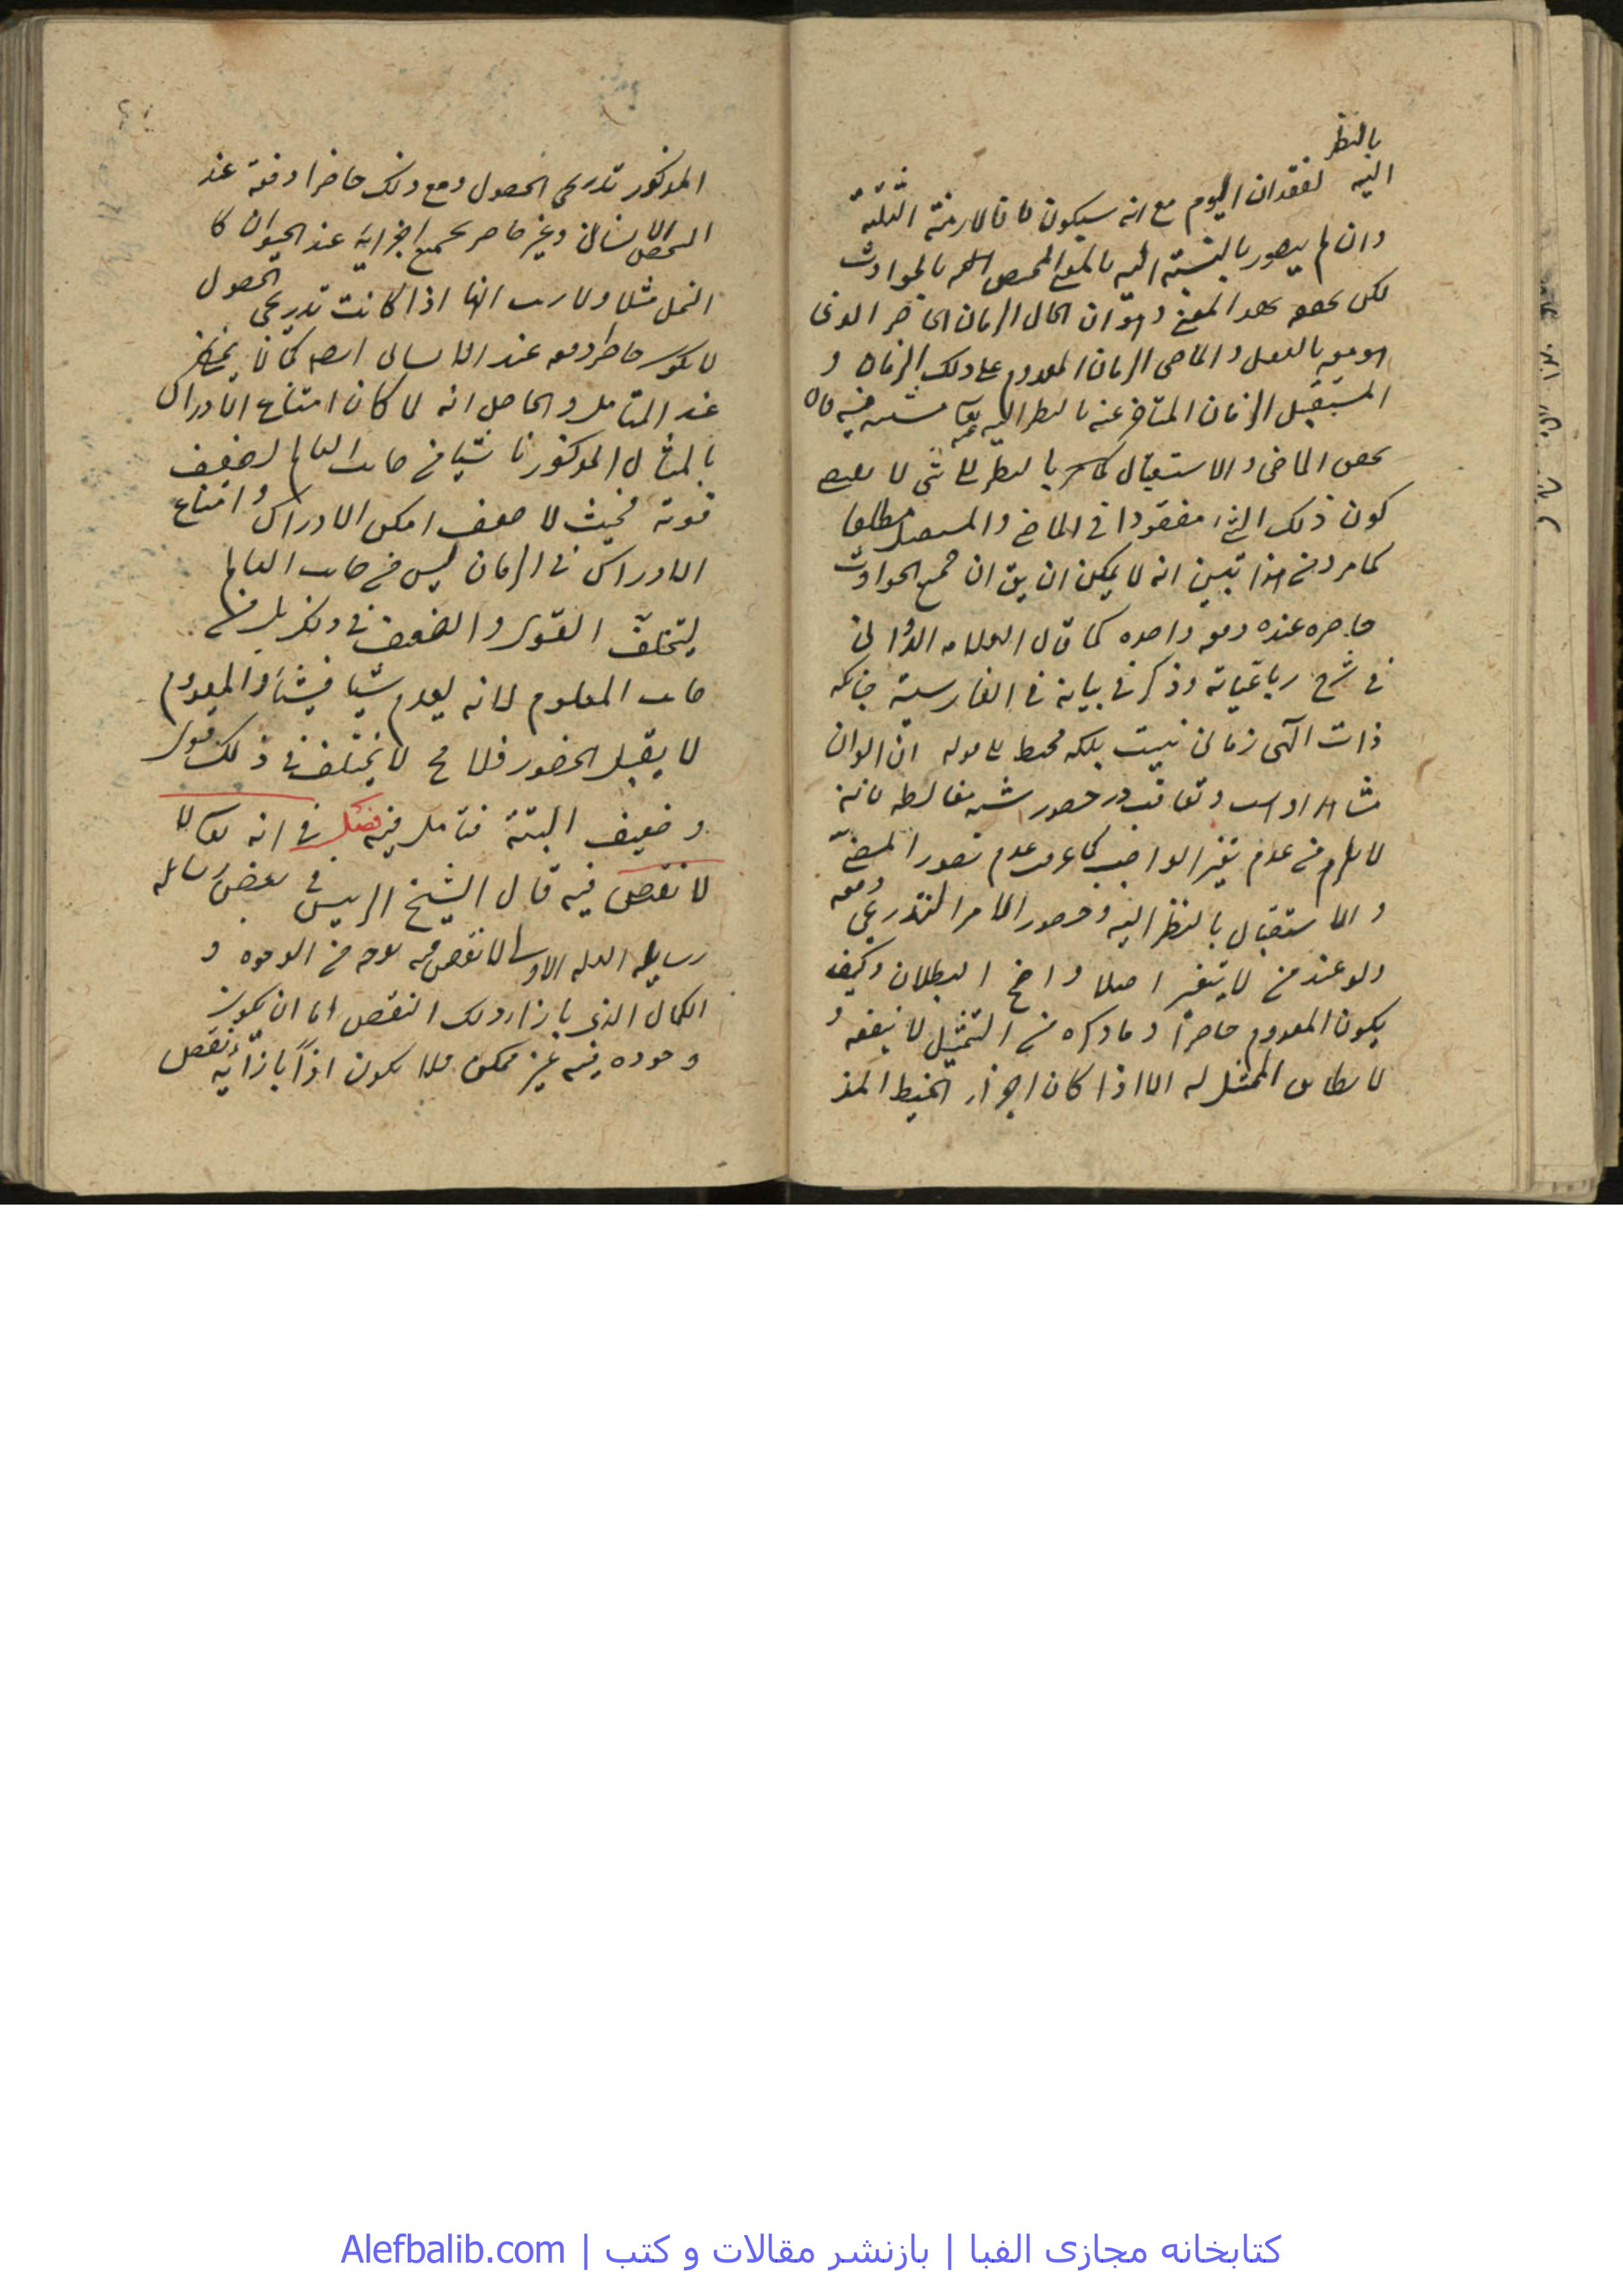 بالنظر
اليه لفقدان اليوم مع انه سيكون فالازمنة الثلثة
وان لم يتصور بالنسبة اليه بالمعنى المخصص بالحوادث
لكن بهذا المعنى وهو ان الحال الزمان الحاضر الذى
هو فيه بالفعل والماضى الزمان المعدوم على ذلك الزمان و
المستقبل الزمان المتاخر عنه بالنظر اليه
الماضى والاستقبال بالنظر الى شى لا
كون ذلك الشئ مفقودا فى الماضى والمستقبل مطلقا
كما مر ومن هذا تبين انه لا يمكن ان يق ان جميع الحوادث
حاضره عنده دفعه واحده كما قال العلامه الدوانى
فى شرح رباعياته وذكر فى بيانه فى الفارسية چنانكه
ذات الهى زمانى نيست بلكه محيط
او است وتعاقب در حضور مغالطه فانه
لا يلزم من عدم تغير الواجب عدم تصور المضى
والاستقبال بالنظر اليه وحضور الامر التدريجى دفعه
ولو عند من لا يتغير اصلا واضح البطلان وكيف
يكون المعدوم حاضرا وما ذكره من التمثيل لا ينفعه و
لا يطابق الممثل له الا اذا كان اجزاء الخيط المذ
المذكور تدريجى الحصول ومع ذلك حاضرا دفعة عند
الشخص الانسانى وغير حاضر بجميع اجزائه عند الحيوان كا
النمل مثلا ولا ريب انها اذا كانت تدريجى الحصول
لا يكون حاضرا دفعه عند الانسان ايضا كما لا يخفى
عند المتامل والحاصل انه لما كان امتناع الادراك
بالمثال المذكور ناشيا من جانب العالم لضعف
قوته فحيث لا ضعف امكن الادراك وامتناع
الادراك فى الزمان ليس من جانب العالم
ليتخلف القوى والضعيف فى ذلك بل من
جانب المعلوم لانه يعدم شيا فشيا والمعدوم
لا يقبل الحضور فلا مح لا يختلف فى ذلك قوى
وضعيف البتة فتامل فيه فصل فى انه تعالى لا
لا نقص فيه قال الشيخ الرييس فى بعض رسايله
رسايله العلة الاولى لا نقص فيه بوجه من الوجوه و
الكمال الذى بازاء ذلك النقص اما ان يكون
وجوده فيه غير ممكن فلا يكون اذاً بازائه نقص
كتابخانه مجازى الفبا | بازنشر مقالات و كتب | Alefbalib.com